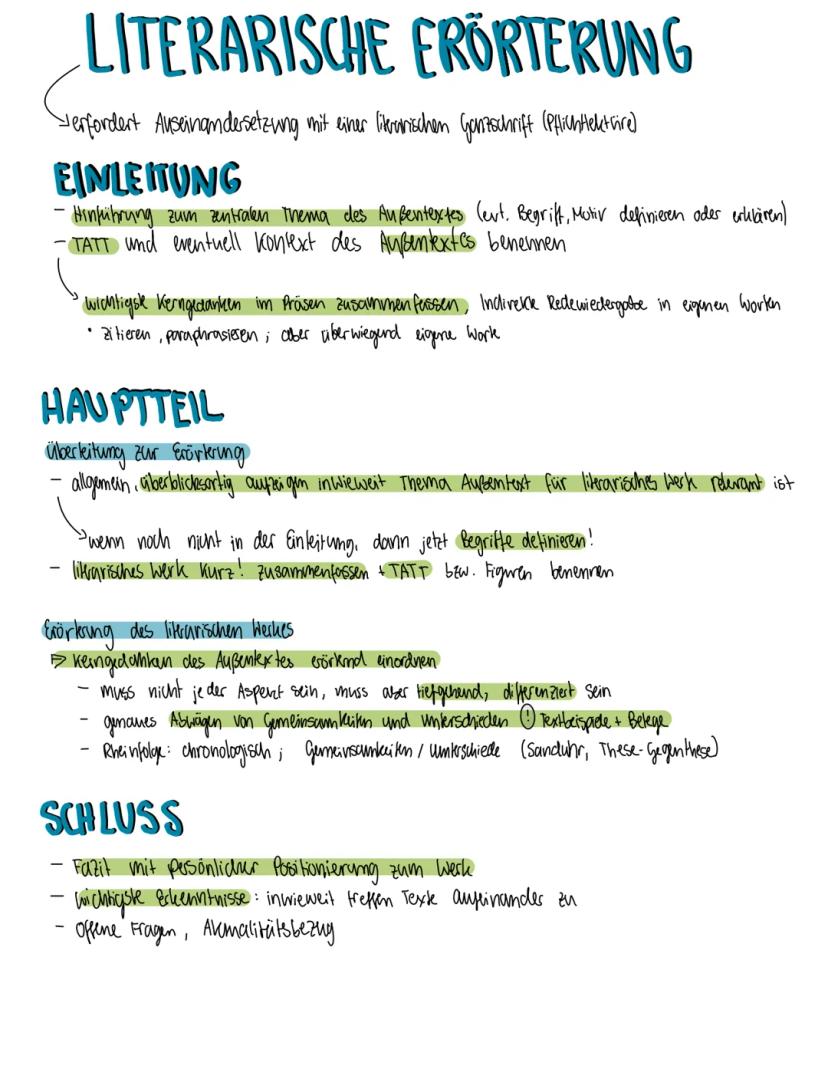 LITERARISCHE ERÖRTERUNG
erfordert Auseinandersetzung mit einer literarischen Ganzschrift (Pflichtlektüre)
EINLEITUNG
- Hinführung zum zentralen Thema des Außentextes (evt. Begriff, Motiv definieren oder erklären)
- TATT und eventuell Kontext des Außentextes benennen
wichtigste Kerngedanken im Präsen zusammenfassen, Indirekte Redewiedergabe in eigenen Worten
• zitieren, paraphrasieren; aber überwiegend eigene Worte
HAUPTTEIL
Überleitung zur Erörterung
- allgemein, überblicksartig aufzeigen inwieweit Thema Außentext für literarisches Werk relevant ist
wenn noch nicht in der Einleitung, dann jetzt Begriffe definieren!
- literarisches Werk kurz! zusammenfassen + TATT bzw. Figuren benennen
Erörterung des literarischen Werkes
⇒ Kerngedanken des Außentextes erörternd einordnen
- muss nicht jeder Aspekt sein, muss aber tiefgehend, differenziert sein
- genaues Abwägen von Gemeinsamkeiten und Unterschieden ! Textbeispiele + Belege
- Rheinfolge: chronologisch; Gemeinsamkeiten / Unterschiede (Sanduhr, These-Gegenthese)
SCHLUSS
- Fazit mit persönlicher Positionierung zum Werk
- wichtigste Erkenntnisse: inwieweit treffen Texte aufeinander zu
- Offene Fragen, Aktualitätsbezug